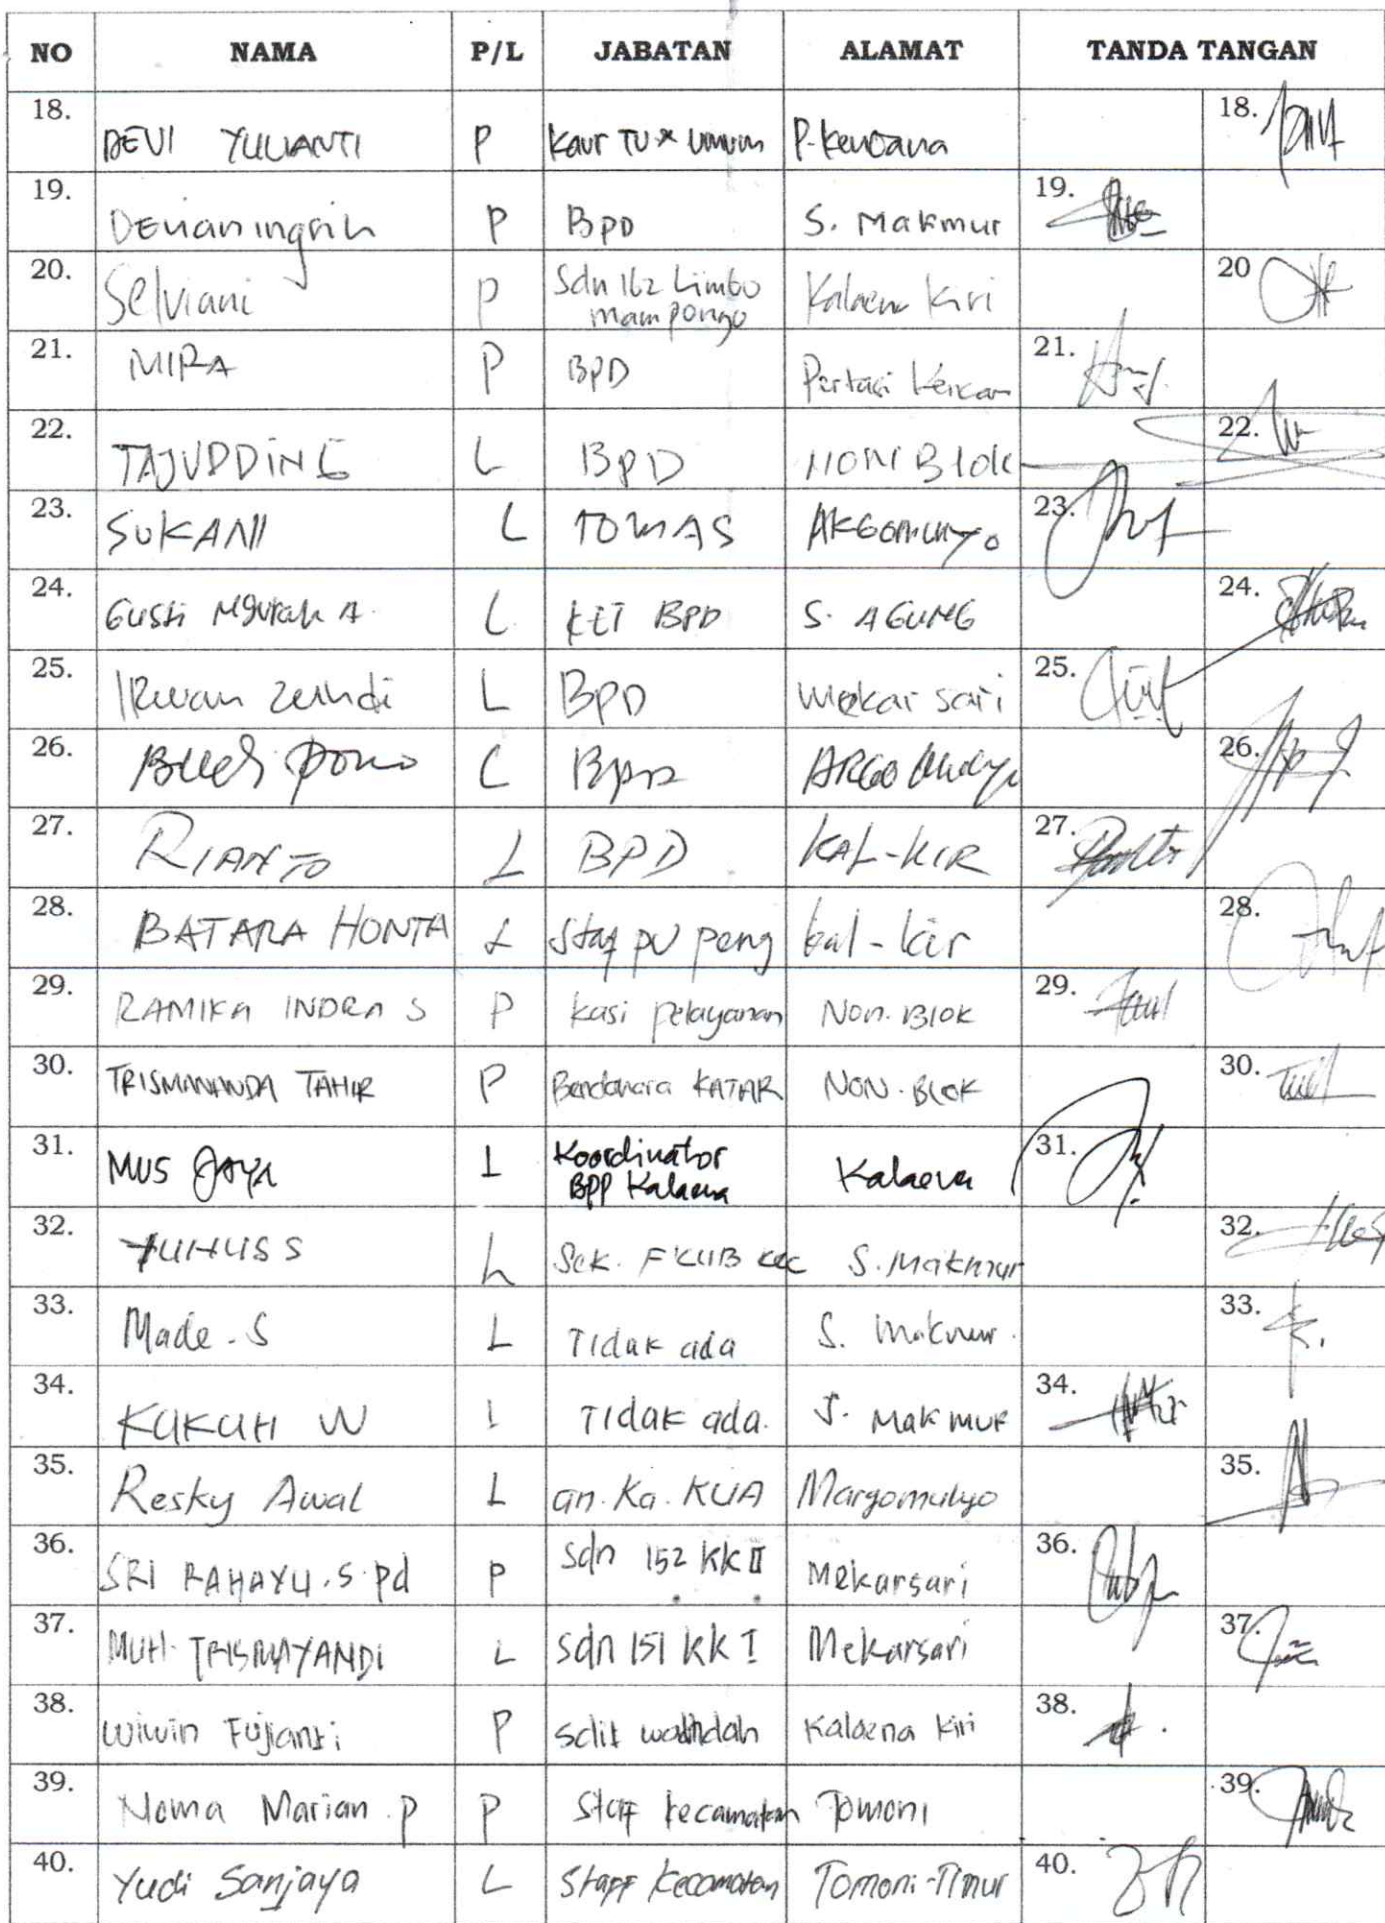 NO NAMA P/L JABATAN ALAMAT TANDA TANGAN
18. DEVI YULIANTI P Kaur TU & Umum P. Kencana 18.
19. Denianingsih P BPD S. Makmur 19.
20. Selviani P Sdn 162 Limbo mampongo Kalaena Kiri 20
21. MIRA P BPD Pertasi Kencan 21.
22. TAJUDDING L BPD NON Blok 22.
23. SUKANI L TOMAS 23.
24. Gusti Ngurah A. L KET BPD S. AGUNG 24.
25. IRwan L BPD Mekar sari 25.
26. L BPD ARGO 26.
27. RIANTO L BPD KAL-KIR 27.
28. BATARA HONTA L Staf PU peng kal-kir 28.
29. RAMIKA INDRA S P Kasi pelayanan Non. Blok 29.
30. TRISMANANDA TAHIR P Bendahara KATAR NON. BLOK 30.
31. MUS JAYA L Koordinator BPP Kalaena Kalaena 31.
32. YUNUS S L Sek. FKUB Kec S. Makmur 32.
33. Made. S L Tidak ada S. Makmur. 33.
34. KUKUH W L Tidak ada. S. Makmur 34.
35. Resky Awal L an. Ka. KUA Margomulyo 35.
36. SRI RAHAYU. S. pd P Sdn 152 KK II Mekarsari 36.
37. MUH. TRISMAYANDI L Sdn 151 KK I Mekarsari 37.
38. Wiwin Fujianti P Sdit wahdah Kalaena Kiri 38.
39. Noma Marian. P P Staf Kecamatan Tomoni 39.
40. Yudi Sanjaya L Staff Kecamatan Tomoni-Timur 40.